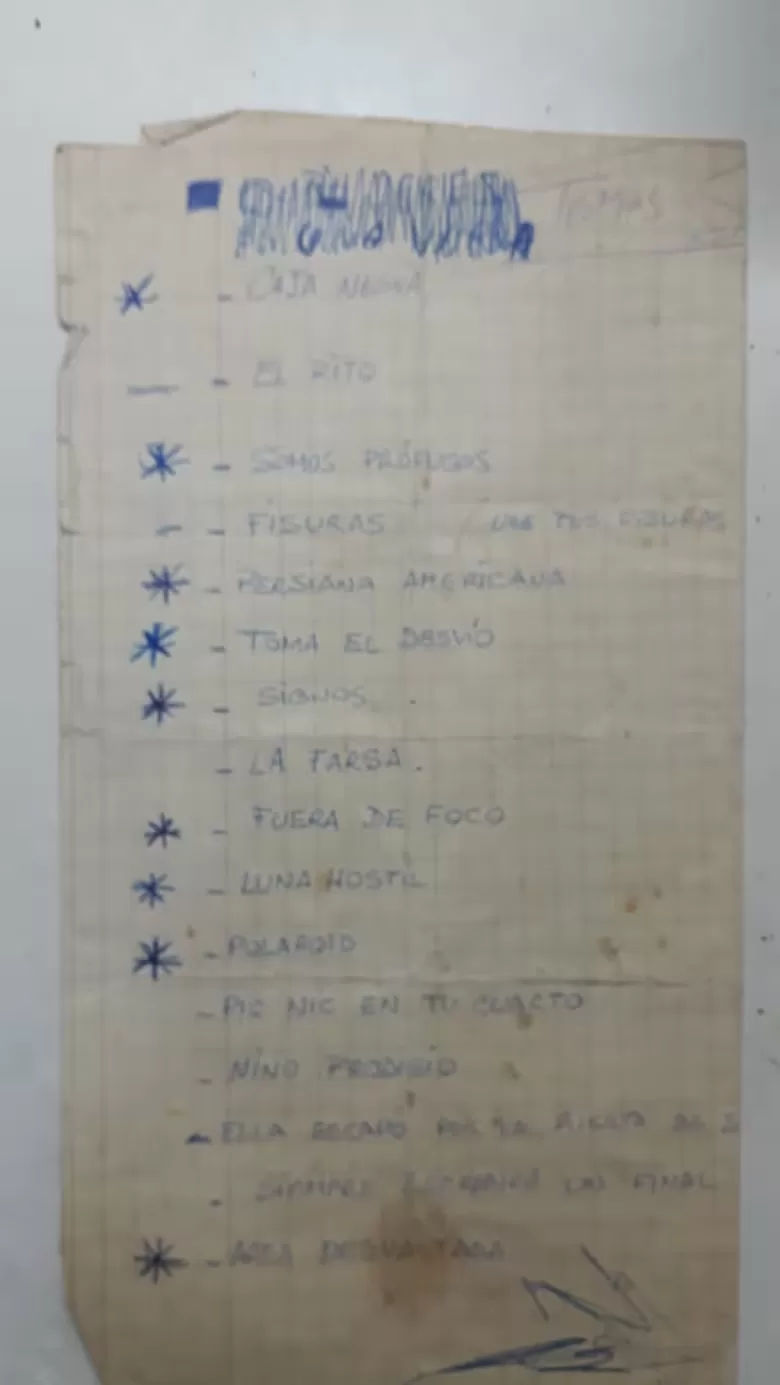 TEMAS
- CAJA NEGRA
- EL RITO
- SOMOS PRÓFUGOS
- FISURAS / USA TUS FISURAS
- PERSIANA AMERICANA
- TOMA EL DESVÍO
- SIGNOS .
- LA FARSA .
- FUERA DE FOCO
- LUNA HOSTIL
- POLAROID
- PIC NIC EN TU CUARTO
- NINO PRODIGIO
- ELLA ESCAPÓ POR LA
- SIEMPRE UN FINAL
- AREA DEVASTADA